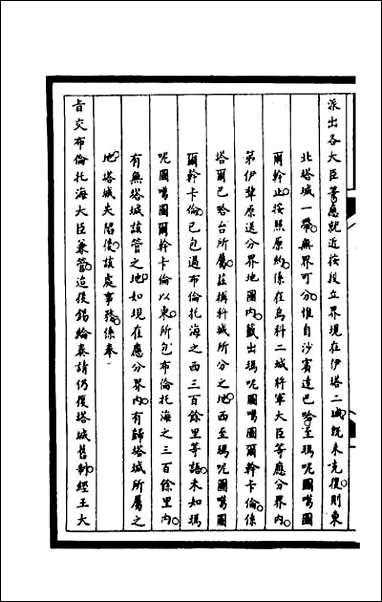 派出各大臣等應就近按段立界現在伊塔二城既未克復則東
北塔城一帶無界可分惟自沙賓達巴哈至瑪呢圖噶圖
爾幹止按照原約係在烏科二城將軍大臣等應分界內
第伊犂原送分界地圖內載出瑪呢圖噶圖爾幹卡倫係
塔爾巴哈台所屬茲稱科城所分之地西至瑪呢圖噶圖
爾幹卡倫已包過布倫托海之西三百餘里等語未知瑪
呢圖噶圖爾幹卡倫以東所包布倫托海之三百餘里內
有無塔城該管之地如現在應分界內有歸塔城所屬之
地塔城失陷後該處事務係奉
旨交布倫托海大臣兼管迨後錫綸奏請仍復塔城舊制經王大